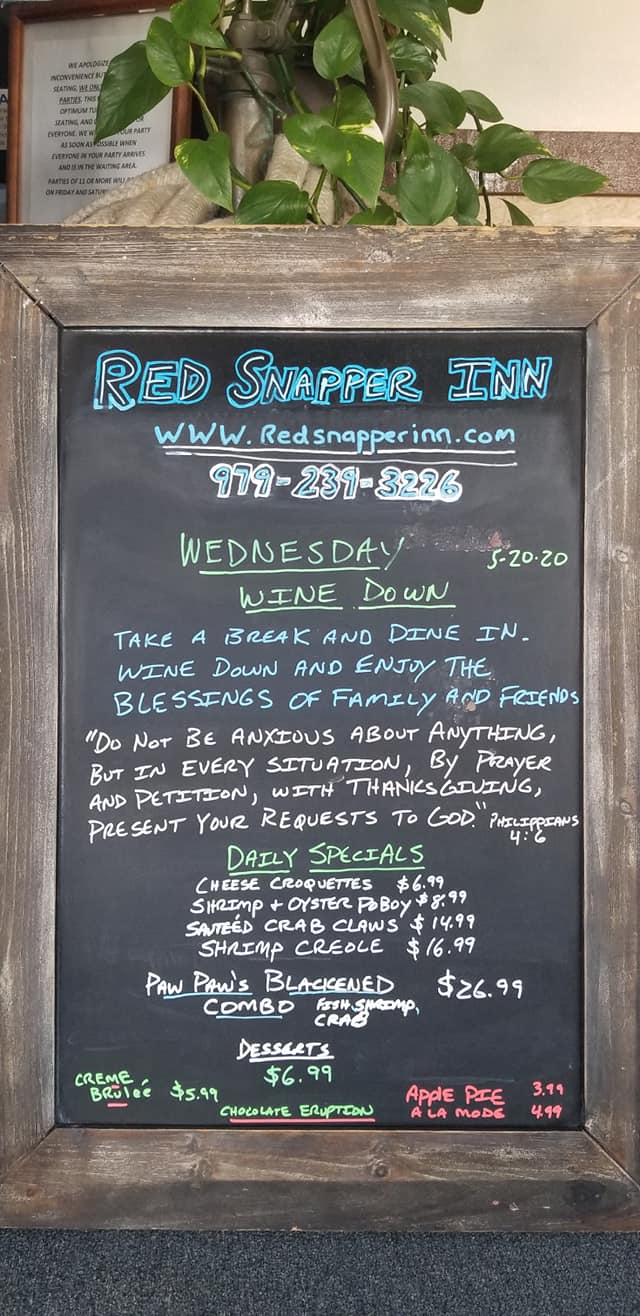 WE APOLOGIZE
INCONVENIENCE BUT
SEATING, WE ONL
PARTIES, THIS
OPTIMUM
SEATING, AND
EVERYONE. WE OUR PARTY
AS SOON AS POSSIBLE WHEN
EVERYONE IN YOUR PARTY ARRIVES
AND IS IN THE WAITING AREA.
PARTIES OF 11 OR MORE WILL
ON FRIDAY AND SATUR
RED SNAPPER INN
WWW.Redsnapperinn.com
979-239-3226
WEDNESDAY 5-20-20
WINE DOWN
TAKE A BREAK AND DINE IN.
WINE DOWN AND ENJOY THE
BLESSINGS OF FAMILY AND FRIENDS
"DO NOT BE ANXIOUS ABOUT ANYTHING,
BUT IN EVERY SITUATION, BY PRAYER
AND PETITION, WITH THANKSGIVING,
PRESENT YOUR REQUESTS TO GOD." PHILIPPIANS
4:6
DAILY SPECIALS
CHEESE CROQUETTES $6.99
SHRIMP + OYSTER POBOY $8.99
SAUTEÉD CRAB CLAWS $14.99
SHRIMP CREOLE $16.99
PAW PAW'S BLACKENED $26.99
COMBO FISH, SHRIMP,
CRAB
DESSERTS
$6.99
CREME
BRuLeé $5.99
CHOCOLATE ERUPTION
APPlE PIE 3.99
A LA MODE 4.99